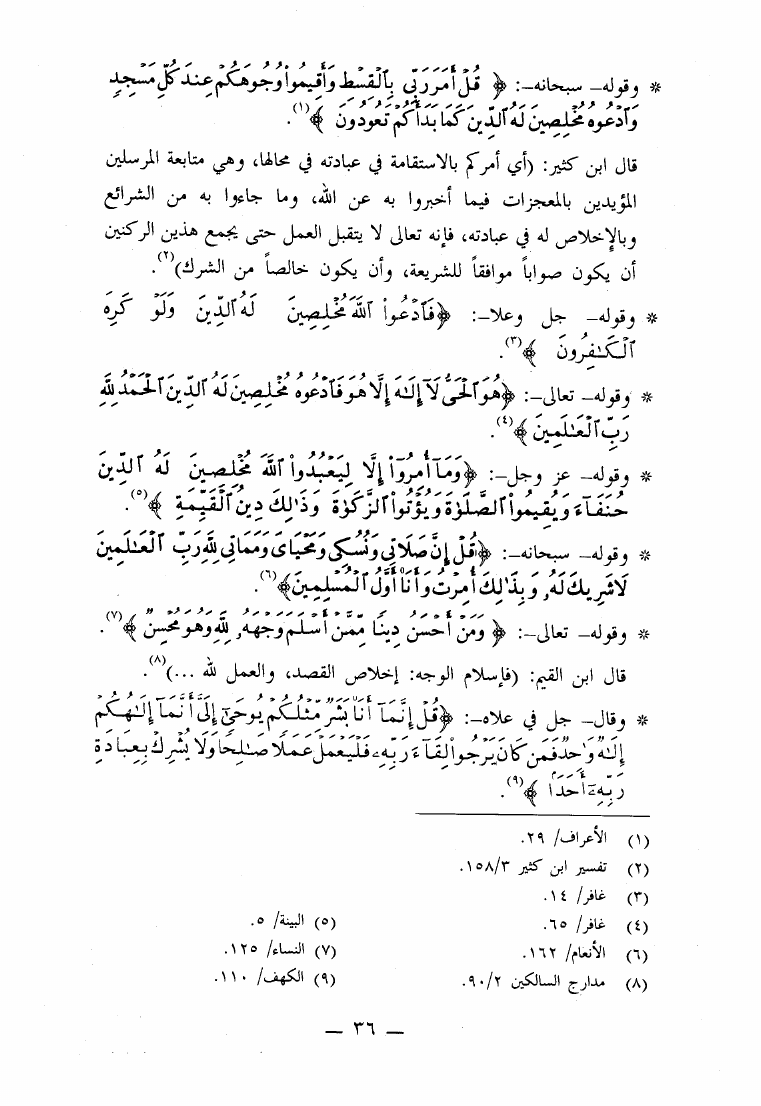 * وقوله– سبحانه–: ﴿ قُلْ أَمَرَ رَبِّي بِٱلْقِسْطِ وَأَقِيمُوا۟ وُجُوهَكُمْ عِندَ كُلِّ مَسْجِدٍ
وَٱدْعُوهُ مُخْلِصِينَ لَهُ ٱلدِّينَ كَمَا بَدَأَكُمْ تَعُودُونَ ﴾(١).
قال ابن كثير: (أي أمركم بالاستقامة في عبادته في محالها، وهي متابعة المرسلين
المؤيدين بالمعجزات فيما أخبروا به عن الله، وما جاءوا به من الشرائع
وبالإخلاص له في عبادته، فإنه تعالى لا يتقبل العمل حتى يجمع هذين الركنين
أن يكون صواباً موافقاً للشريعة، وأن يكون خالصاً من الشرك)(٢).
* وقوله– جل وعلا–: ﴿فَٱدْعُوا۟ ٱللَّهَ مُخْلِصِينَ لَهُ ٱلدِّينَ وَلَوْ كَرِهَ
ٱلْكَٰفِرُونَ ﴾(٣).
* وقوله– تعالى–: ﴿هُوَ ٱلْحَىُّ لَآ إِلَٰهَ إِلَّا هُوَ فَٱدْعُوهُ مُخْلِصِينَ لَهُ ٱلدِّينَ ٱلْحَمْدُ لِلَّهِ
رَبِّ ٱلْعَٰلَمِينَ ﴾(٤).
* وقوله– عز وجل–: ﴿وَمَآ أُمِرُوٓا۟ إِلَّا لِيَعْبُدُوا۟ ٱللَّهَ مُخْلِصِينَ لَهُ ٱلدِّينَ
حُنَفَآءَ وَيُقِيمُوا۟ ٱلصَّلَوٰةَ وَيُؤْتُوا۟ ٱلزَّكَوٰةَ وَذَٰلِكَ دِينُ ٱلْقَيِّمَةِ ﴾(٥).
* وقوله– سبحانه–: ﴿قُلْ إِنَّ صَلَاتِى وَنُسُكِى وَمَحْيَاىَ وَمَمَاتِى لِلَّهِ رَبِّ ٱلْعَٰلَمِينَ
لَا شَرِيكَ لَهُۥ وَبِذَٰلِكَ أُمِرْتُ وَأَنَا۠ أَوَّلُ ٱلْمُسْلِمِينَ﴾(٦).
* وقوله– تعالى–: ﴿ وَمَنْ أَحْسَنُ دِينًا مِّمَّنْ أَسْلَمَ وَجْهَهُۥ لِلَّهِ وَهُوَ مُحْسِنٌ ﴾(٧).
قال ابن القيم: (فإسلام الوجه: إخلاص القصد، والعمل لله ...)(٨).
* وقال– جل في علاه–: ﴿قُلْ إِنَّمَآ أَنَا۠ بَشَرٌ مِّثْلُكُمْ يُوحَىٰٓ إِلَىَّ أَنَّمَآ إِلَٰهُكُمْ
إِلَٰهٌ وَٰحِدٌ فَمَن كَانَ يَرْجُوا۟ لِقَآءَ رَبِّهِۦ فَلْيَعْمَلْ عَمَلًا صَٰلِحًا وَلَا يُشْرِكْ بِعِبَادَةِ
رَبِّهِۦٓ أَحَدًۢا ﴾(٩).
(١) الأعراف/ ٢٩.
(٢) تفسير ابن كثير ١٥٨/٣.
(٣) غافر/ ١٤.
(٤) غافر/ ٦٥. (٥) البينة/ ٥.
(٦) الأنعام/ ١٦٢. (٧) النساء/ ١٢٥.
(٨) مدارج السالكين ٩٠/٢. (٩) الكهف/ ١١٠.
— ٣٦ —